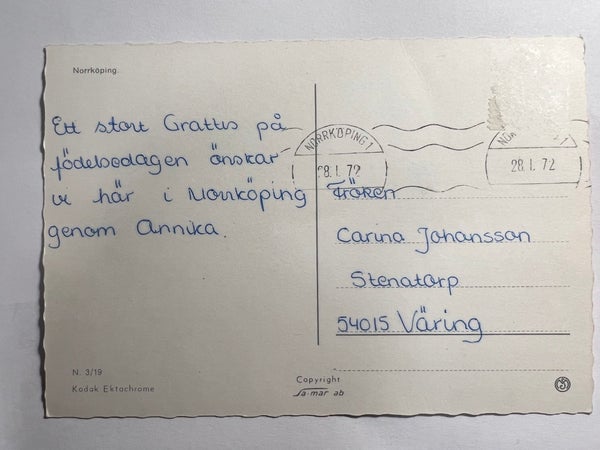 Norrköping.
Ett stort Grattis på
födelsedagen önskar
vi här i Norrköping
genom Annika.
NORRKÖPING 1
28.1.72
28.1.72
Fröken
Carina Johansson
Stenatorp
54015 Väring
N. 3/19
Kodak Ektachrome
Copyright
Sa-mar ab